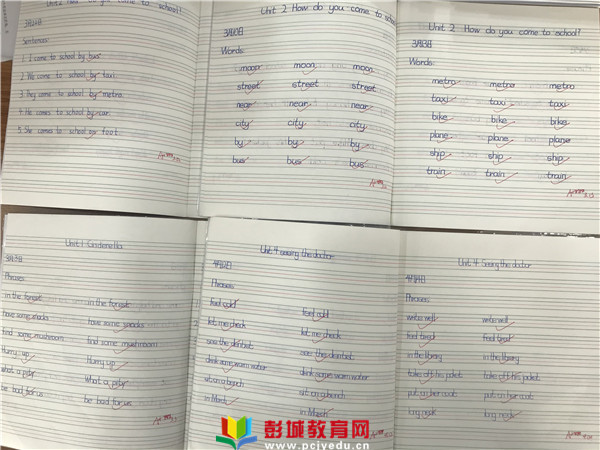 come to school!
Sentences:
1. I come to school by bus.
2. We come to school by taxi.
3. They come to school by metro.
4. He comes to school by car.
5. She comes to school on foot.
Unit 2 How do you come to school
Words:
moon moon moon
street street street
near near near
city city city
by by by
bus bus bus
Unit 2 How do you come to school?
Words:
metro metro metro
taxi taxi taxi
bike bike bike
plane plane plane
ship ship ship
train train train
Unit 1 Cinderella
Phrases:
in the forest in the forest
have some snacks have some snacks
find some mushroom find some mushroom
Hurry up Hurry up
what a pity What a pity
be bad for us be bad for us
Unit 4 seeing the doctor
Phrases:
feel cold feel cold
let me check let me check
see the dentist see the dentist
drink some warm water drink some warm water
sit on a bench sit on a bench
in March in March
Unit 4 Seeing the doctor
Phrases:
write well write well
feel tired feel tired
in the library in the library
take off his jacket take off his jacket
put on her coat put on her coat
long neck long neck
彭城教育网
www.pcjyedu.cn